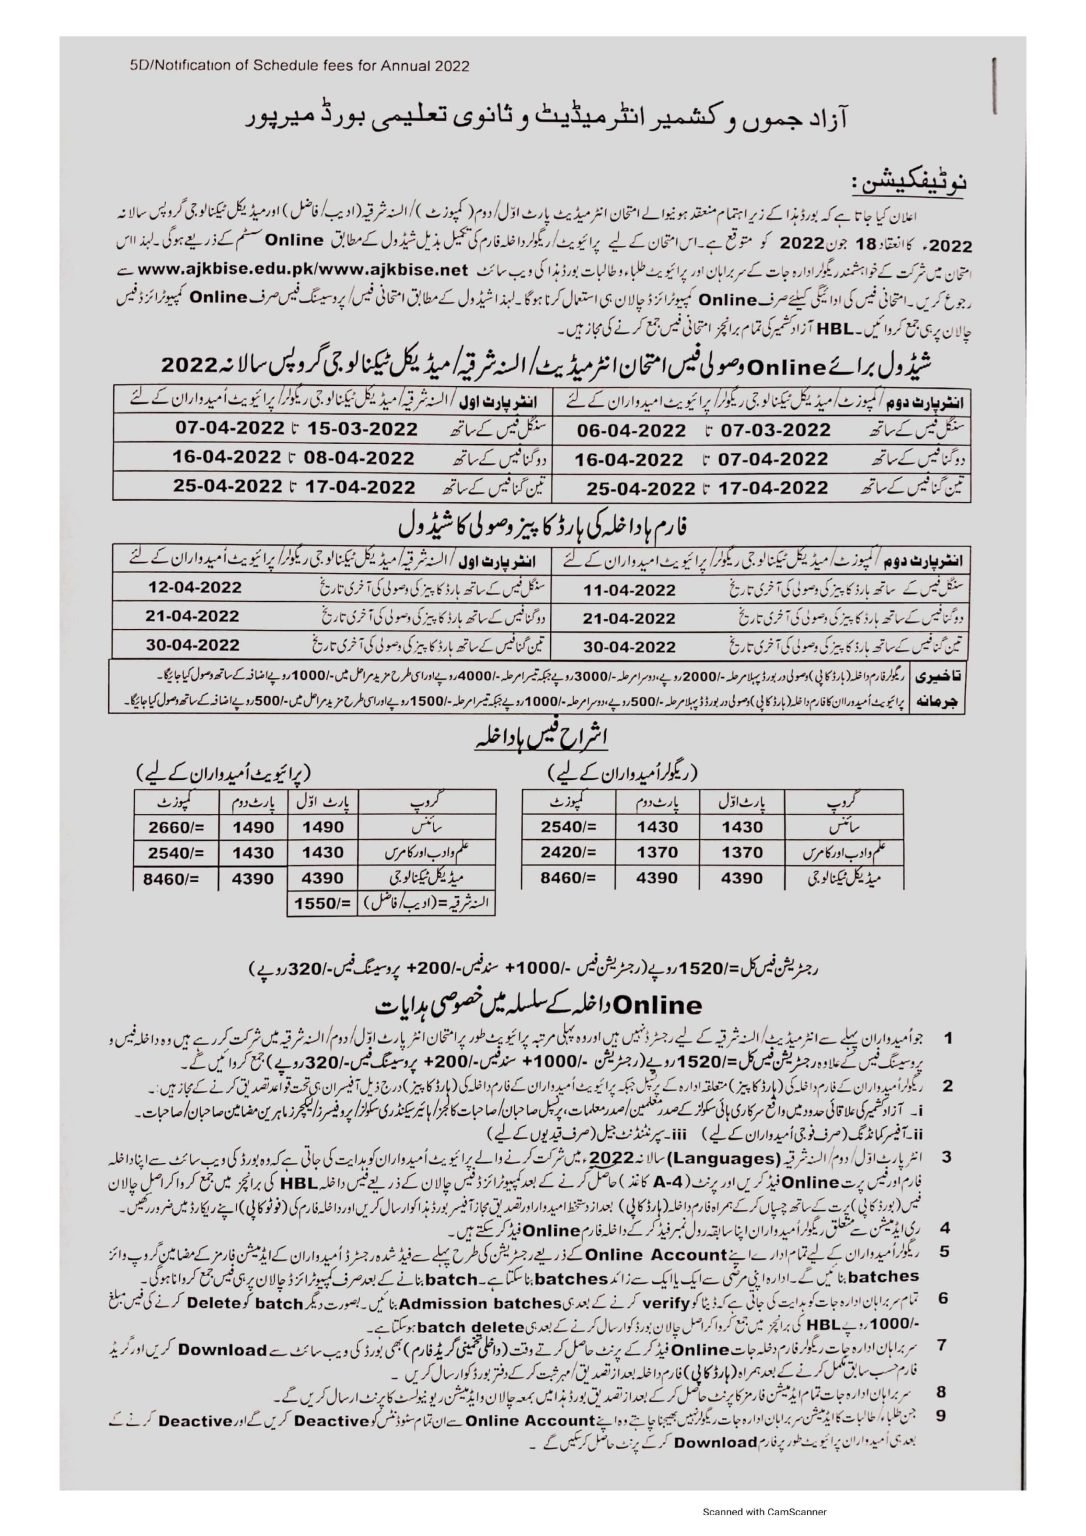 5D/Notification of Schedule fees for Annual 2022
آزاد جموں و کشمیر انٹرمیڈیٹ و ثانوی تعلیمی بورڈ میرپور
نوٹیفکیشن :
اعلان کیا جاتا ہے کہ بورڈ ہذا کے زیر اہتمام منعقد ہونیوالے امتحان انٹرمیڈیٹ پارٹ اوّل/دوم (کمپوزٹ)/السنہ شرقیہ (ادیب/فاضل) اور میڈیکل ٹیکنالوجی گروپس سالانہ
2022ء کا انعقاد 18 جون 2022 کو متوقع ہے۔ اس امتحان کے لیے پرائیویٹ/ریگولر داخلہ فارم کی تکمیل بذیل شیڈول کے مطابق Online سسٹم کے ذریعے ہوگی۔ لہذا اس
امتحان میں شرکت کے خواہشمند ریگولر ادارہ جات کے سربراہان اور پرائیویٹ طلباء و طالبات بورڈ ہذا کی ویب سائٹ www.ajkbise.edu.pk/www.ajkbise.net سے
رجوع کریں۔ امتحانی فیس کی ادائیگی کیلئے صرف Online کمپیوٹرائزڈ چالان ہی استعمال کرنا ہوگا۔ لہذا شیڈول کے مطابق امتحانی فیس/پروسیسنگ فیس صرف Online کمپیوٹرائزڈ فیس
چالان پر ہی جمع کروائیں۔ HBL آزاد کشمیر کی تمام برانچز امتحانی فیس جمع کرنے کی مجاز ہیں۔
شیڈول برائے Online وصولی فیس امتحان انٹرمیڈیٹ/السنہ شرقیہ/میڈیکل ٹیکنالوجی گروپس سالانہ 2022
انٹر پارٹ دوم/کمپوزٹ/میڈیکل ٹیکنالوجی ریگولر/پرائیویٹ امیدواران کے لئے | انٹر پارٹ اول/السنہ شرقیہ/میڈیکل ٹیکنالوجی ریگولر/پرائیویٹ اُمیدواران کے لئے
سنگل فیس کے ساتھ 07-03-2022 تا 06-04-2022 | سنگل فیس کے ساتھ 15-03-2022 تا 07-04-2022
دوگنا فیس کے ساتھ 07-04-2022 تا 16-04-2022 | دوگنا فیس کے ساتھ 08-04-2022 تا 16-04-2022
تین گنا فیس کے ساتھ 17-04-2022 تا 25-04-2022 | تین گنا فیس کے ساتھ 17-04-2022 تا 25-04-2022
فارم ہا داخلہ کی ہارڈ کاپیز وصولی کا شیڈول
انٹر پارٹ دوم/کمپوزٹ/میڈیکل ٹیکنالوجی ریگولر/پرائیویٹ امیدواران کے لئے | انٹر پارٹ اول/السنہ شرقیہ/میڈیکل ٹیکنالوجی ریگولر/پرائیویٹ اُمیدواران کے لئے
سنگل فیس کے ساتھ ہارڈ کاپیز کی وصولی کی آخری تاریخ 11-04-2022 | سنگل فیس کے ساتھ ہارڈ کاپیز کی وصولی کی آخری تاریخ 12-04-2022
دوگنا فیس کے ساتھ ہارڈ کاپیز کی وصولی کی آخری تاریخ 21-04-2022 | دوگنا فیس کے ساتھ ہارڈ کاپیز کی وصولی کی آخری تاریخ 21-04-2022
تین گنا فیس کے ساتھ ہارڈ کاپیز کی وصولی کی آخری تاریخ 30-04-2022 | تین گنا فیس کے ساتھ ہارڈ کاپیز کی وصولی کی آخری تاریخ 30-04-2022
تاخیری ریگولر فارم داخلہ (ہارڈ کاپی) وصولی در بورڈ پہلا مرحلہ -/2000 روپے، دوسرا مرحلہ -/3000 روپے جبکہ تیسرا مرحلہ -/4000 روپے اور اسی طرح مزید مراحل میں -/1000 روپے اضافہ کے ساتھ وصول کیا جائیگا۔
جرمانہ پرائیویٹ اُمیدواران کا فارم داخلہ (ہارڈ کاپی) وصولی در بورڈ پہلا مرحلہ -/500 روپے، دوسرا مرحلہ -/1000 روپے جبکہ تیسرا مرحلہ -/1500 روپے اور اسی طرح مزید مراحل میں -/500 روپے اضافہ کے ساتھ وصول کیا جائیگا۔
اشراح فیس ہا داخلہ
(ریگولر اُمیدواران کے لیے) (پرائیویٹ اُمیدواران کے لیے)
گروپ | پارٹ اوّل | پارٹ دوم | کمپوزٹ | گروپ | پارٹ اوّل | پارٹ دوم | کمپوزٹ
سائنس | 1430 | 1430 | 2540/= | سائنس | 1490 | 1490 | 2660/=
علم و ادب اور کامرس | 1370 | 1370 | 2420/= | علم و ادب اور کامرس | 1430 | 1430 | 2540/=
میڈیکل ٹیکنالوجی | 4390 | 4390 | 8460/= | میڈیکل ٹیکنالوجی | 4390 | 4390 | 8460/=
السنہ شرقیہ =(ادیب/فاضل) | 1550/=
رجسٹریشن فیس کل =/1520 روپے (رجسٹریشن فیس -/1000+ سند فیس -/200+ پروسیسنگ فیس -/320 روپے)
Online داخلہ کے سلسلہ میں خصوصی ہدایات
1 جو اُمیدواران پہلے سے انٹرمیڈیٹ/السنہ شرقیہ کے لیے رجسٹرڈ نہیں ہیں اور وہ پہلی مرتبہ پرائیویٹ طور پر امتحان انٹر پارٹ اوّل/دوم/السنہ شرقیہ میں شرکت کر رہے ہیں وہ داخلہ فیس و
پروسیسنگ فیس کے علاوہ رجسٹریشن فیس کل =/1520 روپے (رجسٹریشن -/1000+ سند فیس -/200+ پروسیسنگ فیس -/320 روپے) جمع کروائیں گے۔
2 ریگولر اُمیدواران کے فارم داخلہ کی (ہارڈ کاپیز) متعلقہ ادارہ کے پرنسپل جبکہ پرائیویٹ اُمیدواران کے فارم داخلہ کی (ہارڈ کاپیز) درج ذیل آفیسران ہی تحت قواعد تصدیق کرنے کے مجاز ہیں:۔
i۔ آزاد کشمیر کی علاقائی حدود میں واقع سرکاری ہائی سکولز کے صدر معلمین/صدر معلمات، پرنسپل صاحبان/صاحبات کالجز/ہائیر سیکنڈری سکولز/پروفیسرز/لیکچررز ماہرین مضامین صاحبان/صاحبات۔
ii۔ آفیسر کمانڈنگ (صرف فوجی اُمیدواران کے لیے) iii۔ سپرنٹنڈنٹ جیل (صرف قیدیوں کے لیے)
3 انٹر پارٹ اوّل/دوم/السنہ شرقیہ (Languages) سالانہ 2022ء میں شرکت کرنے والے پرائیویٹ اُمیدواران کو ہدایت کی جاتی ہے کہ وہ بورڈ کی ویب سائٹ سے اپنا داخلہ
فارم اور فیس پرت Online فیڈ کریں اور پرنٹ (A-4 کاغذ) حاصل کرنے کے بعد کمپیوٹرائزڈ فیس چالان کے ذریعے فیس داخلہ HBL کی برانچز میں جمع کروا کر اصل چالان
فیس (بورڈ کاپی) پرت کے ساتھ چسپاں کر کے ہمراہ فارم داخلہ (ہارڈ کاپی) بعد از دستخط امیدوار اور تصدیق مجاز آفیسر بورڈ ہذا کو ارسال کریں اور داخلہ فارم کی (فوٹو کاپی) اپنے ریکارڈ میں ضرور رکھیں۔
4 ری ایڈمیشن سے متعلق ریگولر اُمیدواران اپنا سابقہ رول نمبر فیڈ کر کے داخلہ فارم Online فیڈ کر سکتے ہیں۔
5 ریگولر اُمیدواران کے لیے تمام ادارے اپنے Online Account کے ذریعے رجسٹریشن کی طرح پہلے سے فیڈ شدہ رجسٹرڈ اُمیدواران کے ایڈمیشن فارمز کے مضامین گروپ وائز
batches بنائیں گے۔ ادارہ اپنی مرضی سے ایک یا ایک سے زائد batches بنا سکتا ہے۔ batch بنانے کے بعد صرف کمپیوٹرائزڈ چالان پر ہی فیس جمع کروانا ہوگی۔
6 تمام سربراہان ادارہ جات کو ہدایت کی جاتی ہے کہ ڈیٹا کو verify کرنے کے بعد ہی Admission batches بنائیں۔ بصورت دیگر batch کو Delete کرنے کی فیس مبلغ
-/1000 روپے HBL کی برانچز میں جمع کروا کر اصل چالان بورڈ کو ارسال کرنے کے بعد ہی batch delete ہو سکتا ہے۔
7 سربراہان ادارہ جات ریگولر فارم داخلہ جات Online فیڈ کر کے پرنٹ حاصل کرتے وقت (داخلی تخمینی گریڈ فارم) بھی بورڈ کی ویب سائٹ سے Download کریں اور گریڈ
فارم حسب سابق مکمل کرنے کے بعد ہمراہ (ہارڈ کاپی) فارم داخلہ بعد از تصدیق/مہر ثبت کر کے دفتر بورڈ کو ارسال کریں ۔
8 سربراہان ادارہ جات تمام ایڈمیشن فارمز کا پرنٹ حاصل کر کے بعد از تصدیق بورڈ ہذا میں بمعہ چالان و ایڈمیشن ریونیو لسٹ کا پرنٹ ارسال کریں گے۔
9 جن طلباء/طالبات کا ایڈمیشن سربراہان ادارہ جات ریگولر نہیں بھیجنا چاہتے وہ اپنے Online Account سے ان تمام سٹوڈنٹس کو Deactive کریں گے اور Deactive کرنے کے
بعد ہی اُمیدواران پرائیویٹ طور پر فارم Download کر کے پرنٹ حاصل کر سکیں گے ۔
Scanned with CamScanner